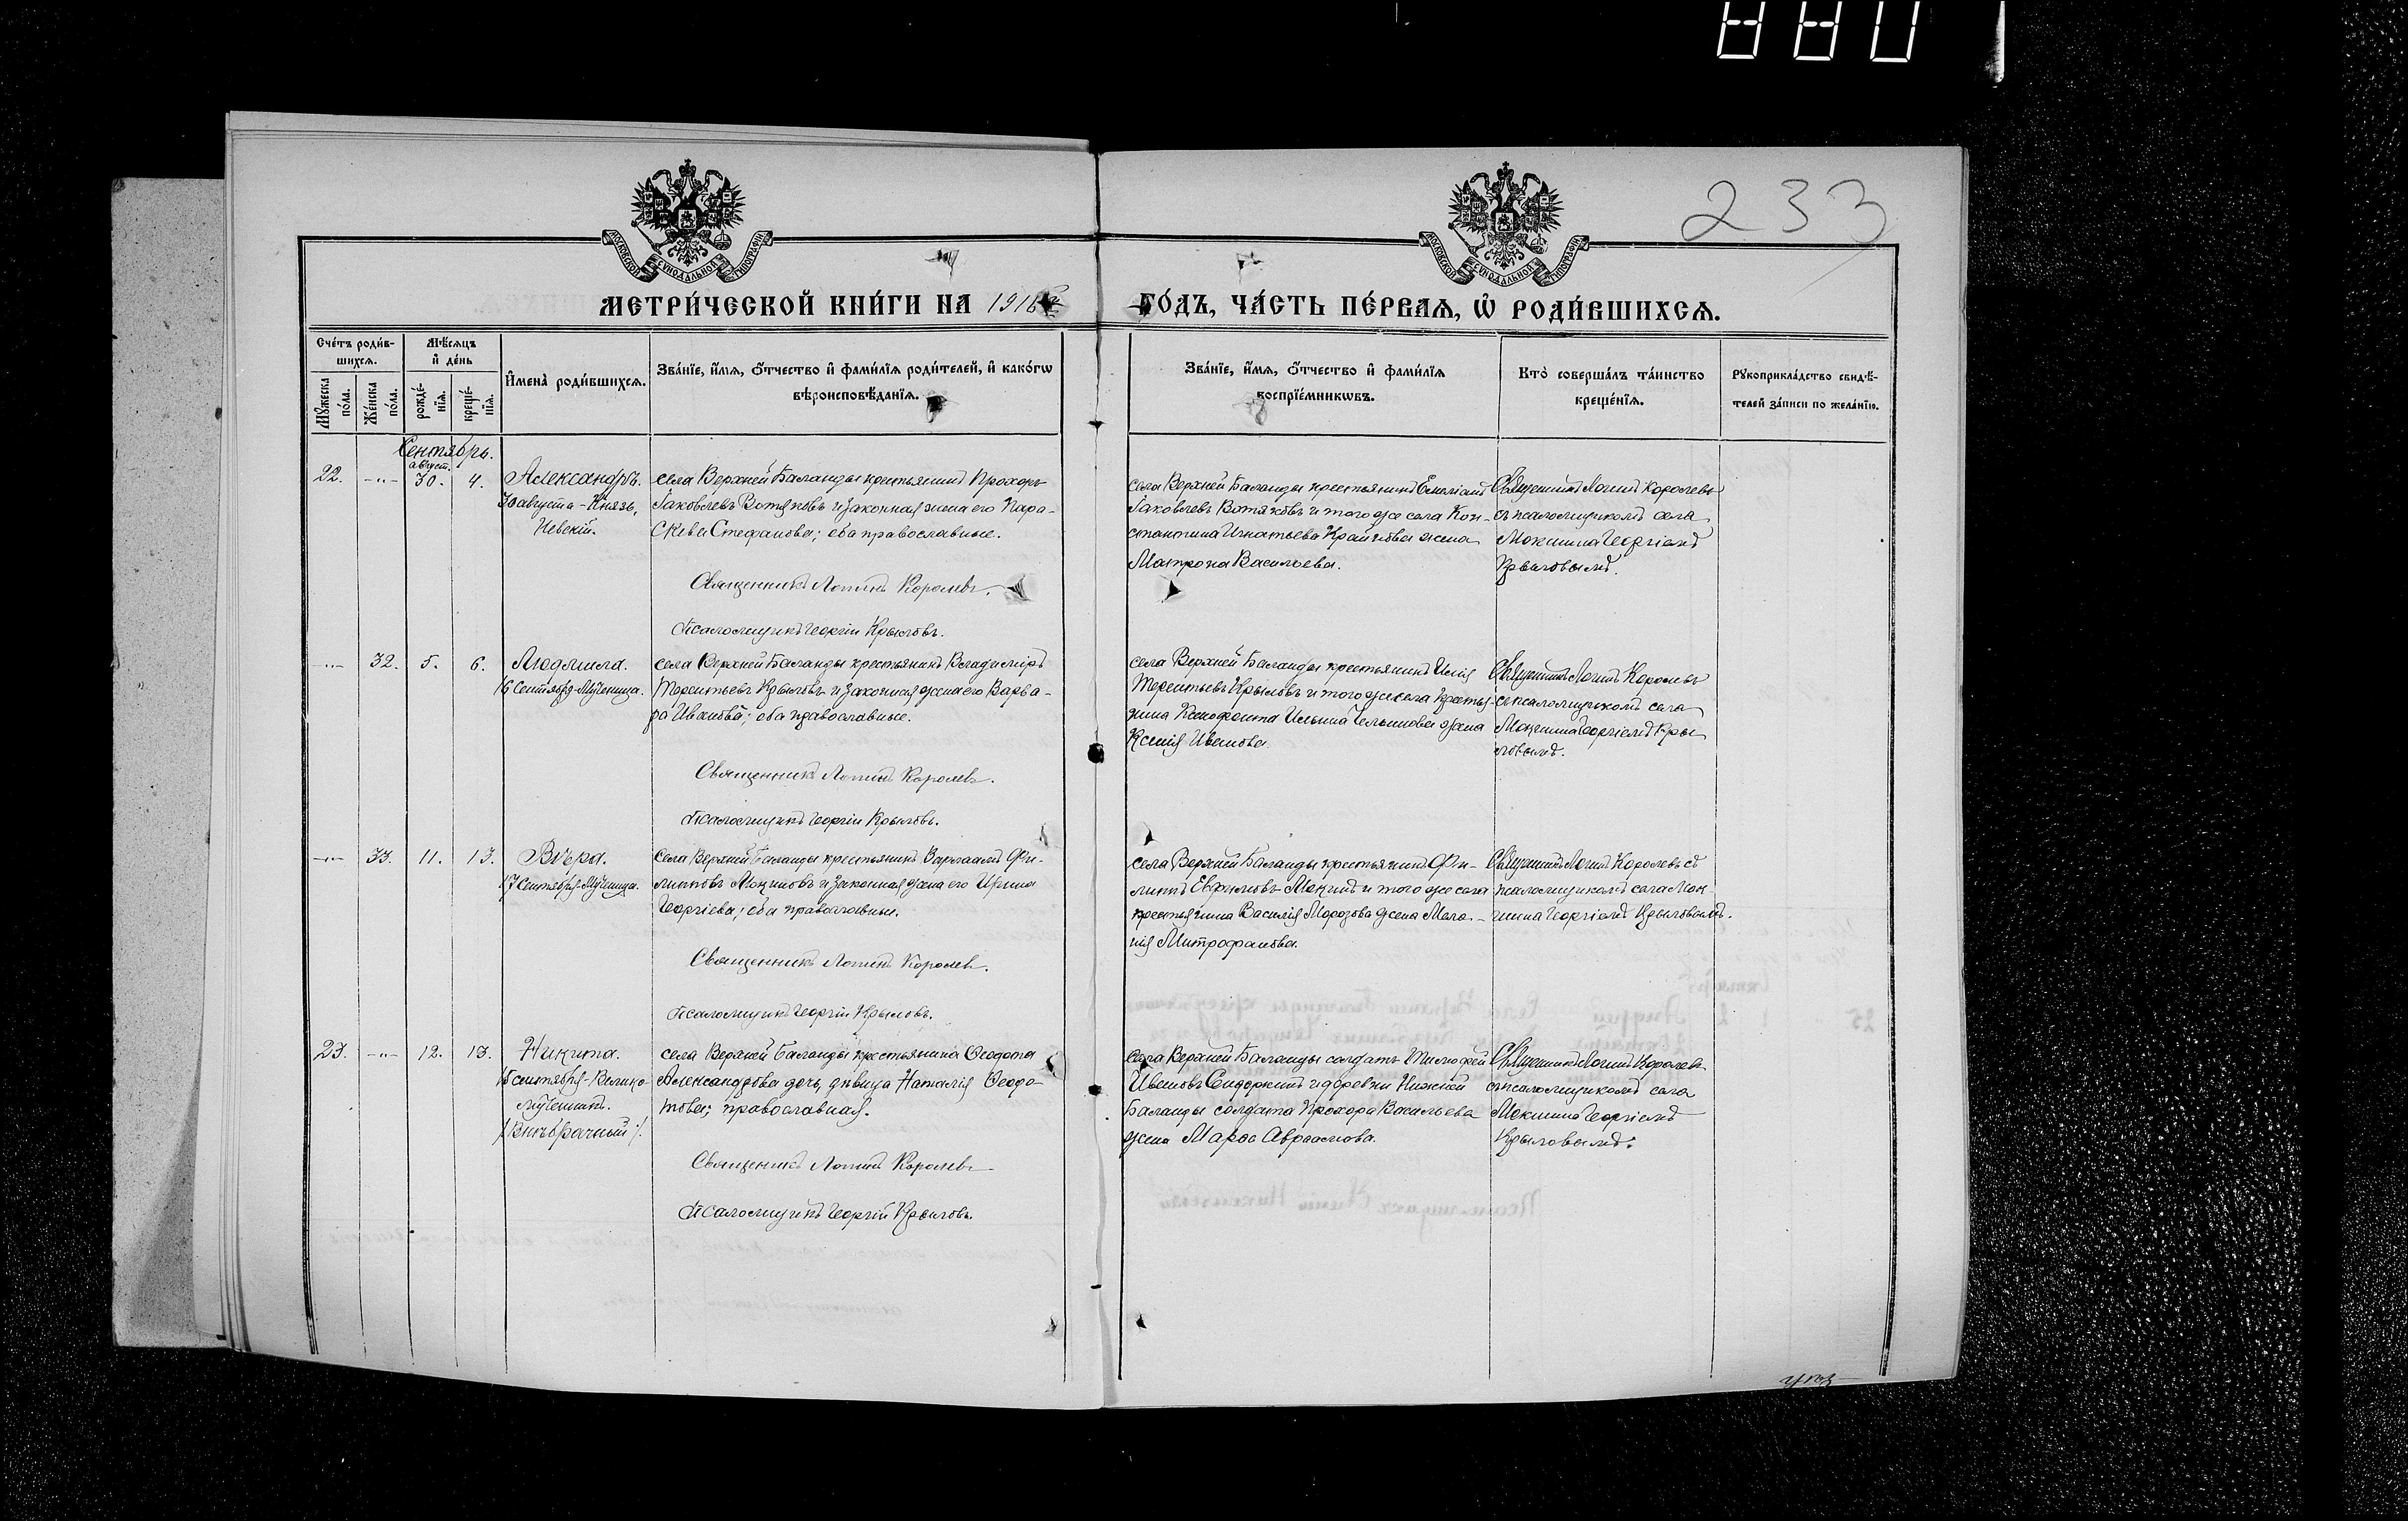 233
МОСКОВСКОЙ СѴНОДАЛЬНОЙ ТИПОГРАФІИ
МОСКОВСКОЙ СѴНОДАЛЬНОЙ ТИПОГРАФІИ
МЕТРИ́ЧЕСКОЙ КНИ́ГИ НА 1916 ГО́ДЪ, ЧА́СТЬ ПЕ́РВАѦ, Ѡ҆ РОДИ́ВШИХСѦ.
Сче́тъ роди́в-
шихсѧ.
Мꙋ́жеска по́ла.
Же́нска по́ла.
Мѣ́сѧцъ
и҆ де́нь
рожде́-
нїѧ.
креще́-
нїѧ.
И҆мена̀ роди́вшихсѧ.
Зва́нїе, и҆́мѧ, ѻ҆́тчество и҆ фами́лїѧ роди́телей, и҆ како́гѡ
вѣроисповѣ́данїѧ.
Зва́нїе, и҆́мѧ, ѻ҆́тчество и҆ фами́лїѧ
воспрїе́мникѡвъ.
Кто̀ соверша́лъ та́инство
креще́нїѧ.
Рꙋкоприкла́дство свидѣ́-
телей за́писи по жела́нїю.
Сентябрь.
август.
22. -"- 30. 4.
Александръ.
30 августа - Князь,
Невскій.
села Верхней Баланды крестьянинъ Прохоръ
Іаковлевъ Вотяковъ и законная жена его Пара-
скева Стефанова; оба православные.
Священникъ Логинъ Королевъ.
Псаломщикъ Георгій Крыловъ.
села Верхней Баланды крестьянинъ Емеліанъ
Іаковлевъ Вотяковъ и того же села Кон-
стантина Игнатьева жена
Матрона Васильева.
Священникъ Логинъ Королевъ
съ псаломщикомъ села
Мокшина Георгіемъ
Крыловымъ.
-"- 32. 5. 6.
Людмила.
16 Сентября - Мученица.
села Верхней Баланды крестьянинъ Владиміръ
Терентьевъ Крыловъ и законная жена его Варва-
ра Иванова; оба православные.
Священникъ Логинъ Королевъ.
Псаломщикъ Георгій Крыловъ.
села Верхней Баланды крестьянинъ Илія
Терентьевъ Крыловъ и того же села крестья-
нина Ксенофонта Ильина жена
Ксенія Иванова.
Священникъ Логинъ Королевъ
съ псаломщикомъ села
Мокшина Георгіемъ Кры-
ловымъ.
-"- 33. 11. 13.
Вѣра.
17 Сентября - Мученица.
села Верхней Баланды крестьянинъ Варлаамъ Фи-
липповъ Мокшинъ и законная жена его Ирина
Георгіева; оба православные.
Священникъ Логинъ Королевъ.
Псаломщикъ Георгій Крыловъ.
села Верхней Баланды крестьянинъ Фи-
липпъ Ефимовъ и того же села
крестьянина Василія Морозова жена Мела-
нія Митрофанова.
Священникъ Логинъ Королевъ съ
псаломщикомъ села Мок-
шина Георгіемъ Крыловымъ.
23. -"- 12. 13.
Никита.
15 сентября - Велико-
мученикъ.
/: Внѣбрачный :/.
села Верхней Баланды крестьянина Ѳеодота
Александрова дочь, дѣвица Наталія Ѳеодо-
това; православная.
Священникъ Логинъ Королевъ
Псаломщикъ Георгій Крыловъ.
села Верхней Баланды солдатъ Тимофей
Ивановъ Сидоркинъ и деревни Нижней
Баланды солдата Прохора Васильева
жена Марѳа Авраамова.
Священникъ Логинъ Королевъ
съ псаломщикомъ села
Мокшина Георгіемъ
Крыловымъ.